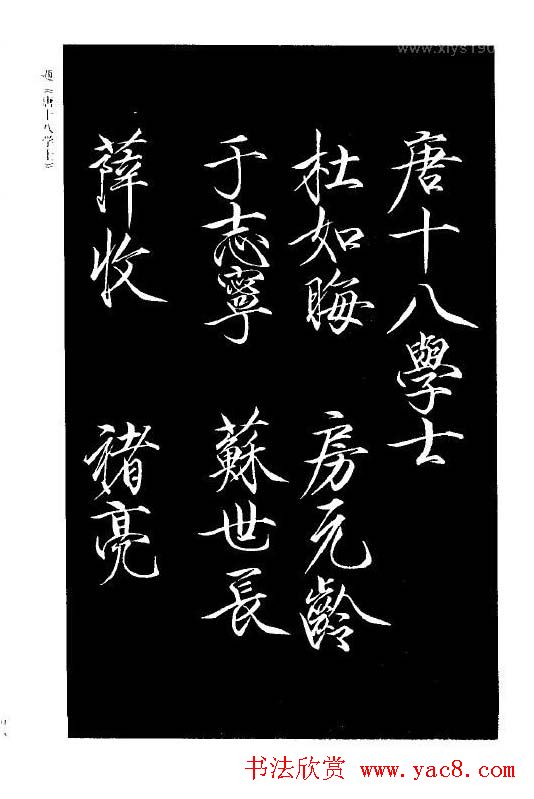 唐十八學士
杜如晦 房元齡
于志寧 蘇世長
薛收 褚亮
题《唐十八学士》
www.xiys190
书法欣赏 www.yac8.com